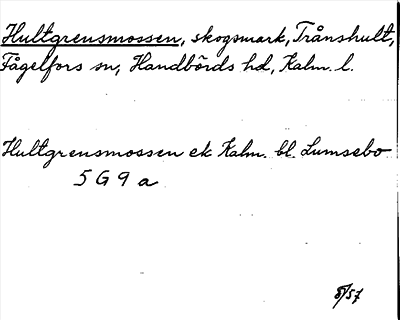 Hultgrensmossen, skogsmark, Trånshult,
Fågelfors sn, Handbörds hd, Kalm. l.
Hultgrensmossen ek Kalm. bl. Lumsebo
5 G 9 a
8/57